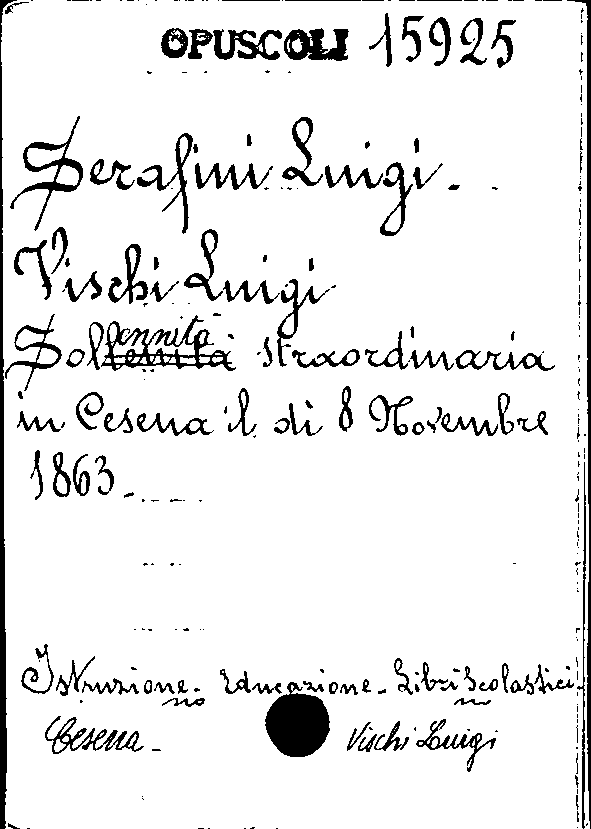 OPUSCOLI 15925
Serafini Luigi.
Vischi Luigi
Sollennità straordinaria
in Cesena il di 8 Novembre
1863.
Istruzione. Educazione. Libri Scolastici.
Cesena. Vischi Luigi